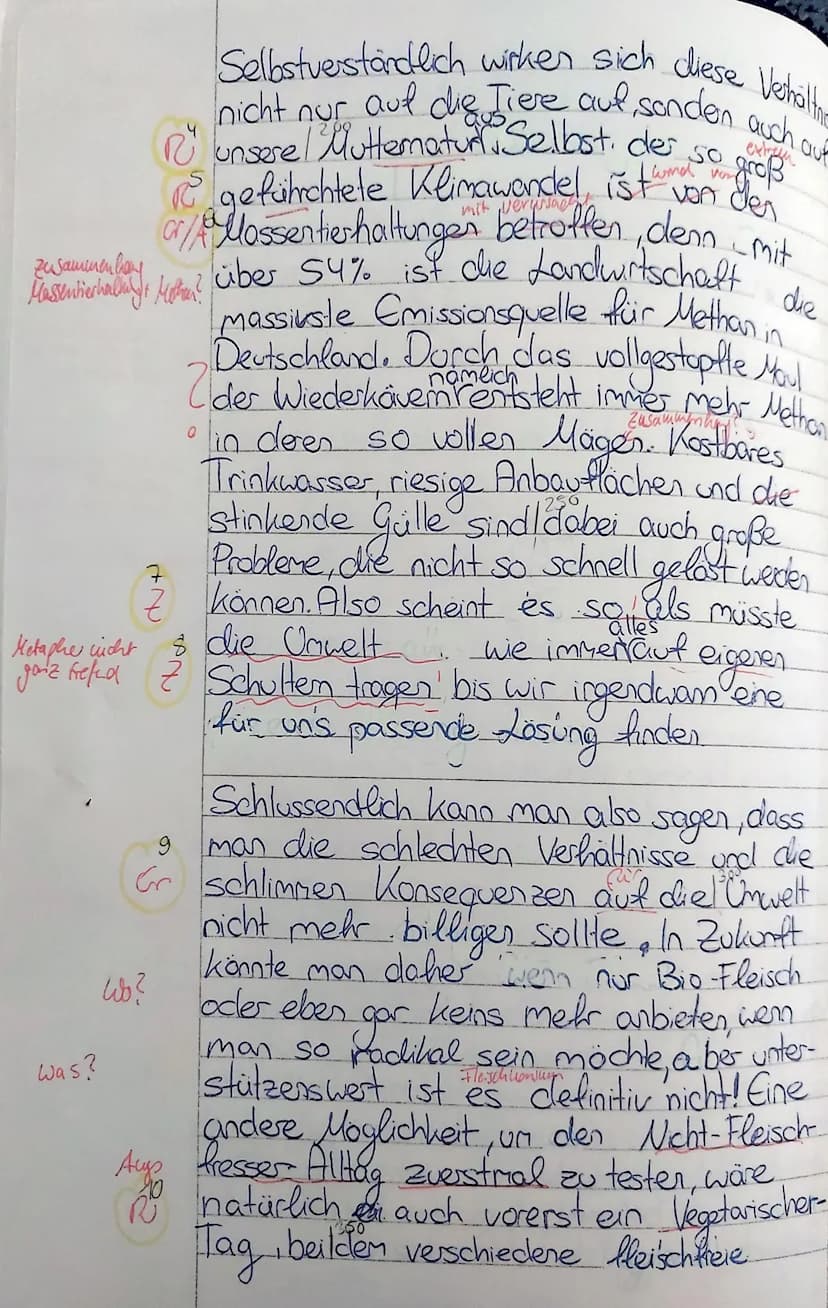 Selbstverständlich wirken sich diese Verhältnis
nicht nur auf die Tiere auf, sonden auch auf
aus
4 R unsere Mutternatur. Selbst der so groß
200
extrem
5 R geführchtete Klimawandel, ist von den
wird von
Gr/A Massentierhaltungen betroffen, denn mit
mit verursacht
Zusammenhang
Massentierhaltung + Methan?
über 54% ist die Landwirtschaft die
massivste Emissionsquelle für Methan in
Deutschland. Durch das vollgestopfte Maul
nämlich
? der Wiederkäuern entsteht immer mehr Methan
in deren so vollen Mägen. Kostbares
Zusammenhang?
Trinkwasser, riesige Anbauflächen und die
stinkende Gülle sind dabei auch große
250
Probleme, die nicht so schnell gelöst werden
7 Z können. Also scheint es so, als müsste
alles
8 Z die Umwelt wie immer auf eigenen
Metapher nicht
ganz treffend
Schultern tragen bis wir irgendwann eine
für uns passende Lösung finden
Schlussendlich kann man also sagen, dass
9 man die schlechten Verhältnisse und die
Gr schlimmen Konsequenzen auf die Umwelt
für
300
nicht mehr billigen sollte. In Zukunft
könnte man daher wenn nur Bio-Fleisch
Wo?
oder eben gar keins mehr anbieten, wenn
man so radikal sein möchte, aber unter-
Was?
stützenswert ist es definitiv nicht! Eine
Fleischkonsum
andere Möglichkeit, um den Nicht-Fleisch-
Ausp fresser-Alltag zuerstmal zu testen, wäre
10 R natürlich auch vorerst ein Vegetarischer-
350
Tag, bei dem verschiedene fleischfreie